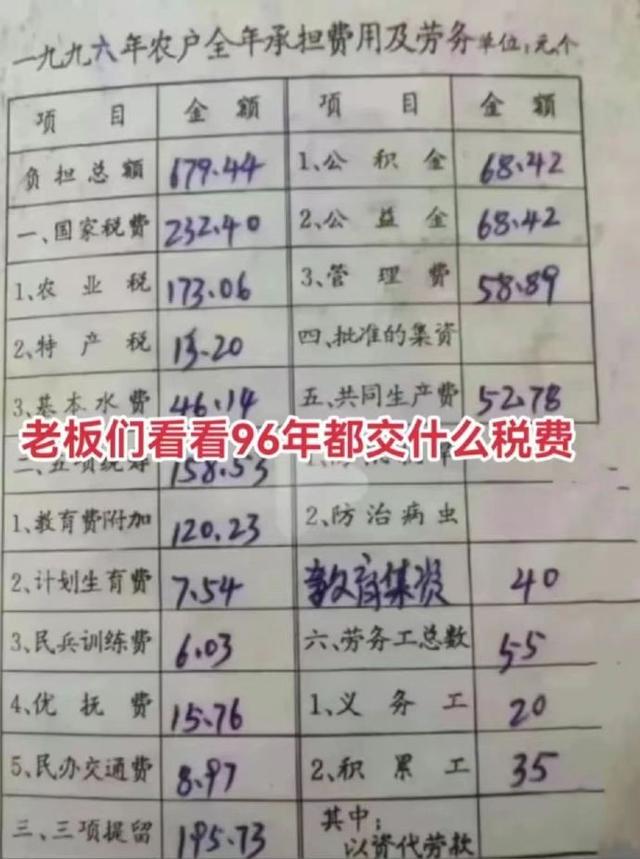 一九九六年农户全年承担费用及劳务 单位:元、个
项 目 金 额 项 目 金 额
负担总额 679.44 1、公积金 68.42
一、国家税费 232.40 2、公益金 68.42
1、农业税 173.06 3、管理费 58.89
2、特产税 13.20 四、批准的集资
3、基本水费 46.14 五、共同生产费 52.78
老板们看看96年都交什么税费
二、五项统筹 158.53
1、教育费附加 120.23 2、防治病虫
2、计划生育费 7.54 教育集资 40
3、民兵训练费 6.03 六、劳务工总数 55
4、优抚费 15.76 1、义务工 20
5、民办交通费 8.97 2、积累工 35
三、三项提留 195.73 其中:
以资代劳款